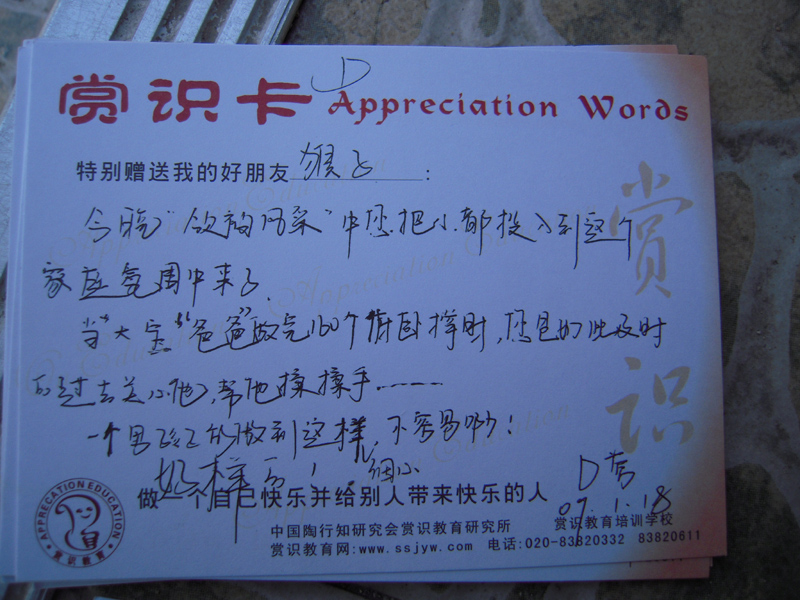 赏识卡 D Appreciation Words
特别赠送我的好朋友 猴子 :
今晚"领袖风采"中您把心都投入到这个
家庭氛围中来了.
当"大宝""爸爸"做完100个俯卧撑时,您是如此及时
的过去关心他,帮他揉揉手……
一个男孩子的做到这样,不容易哟!
好样的! 细心
D营
做一个自己快乐并给别人带来快乐的人
07.1.18
中国陶行知研究会赏识教育研究所 赏识教育培训学校
赏识教育网:www.ssjyw.com 电话:020-83820332 83820611
APPRECATION EDUCATION
赏识教育
赏识